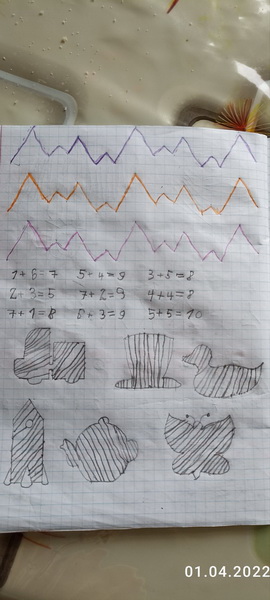 1+6=7 5+4=9 3+5=8
2+3=5 7+2=9 4+4=8
7+1=8 6+3=9 5+5=10
01.04.2022